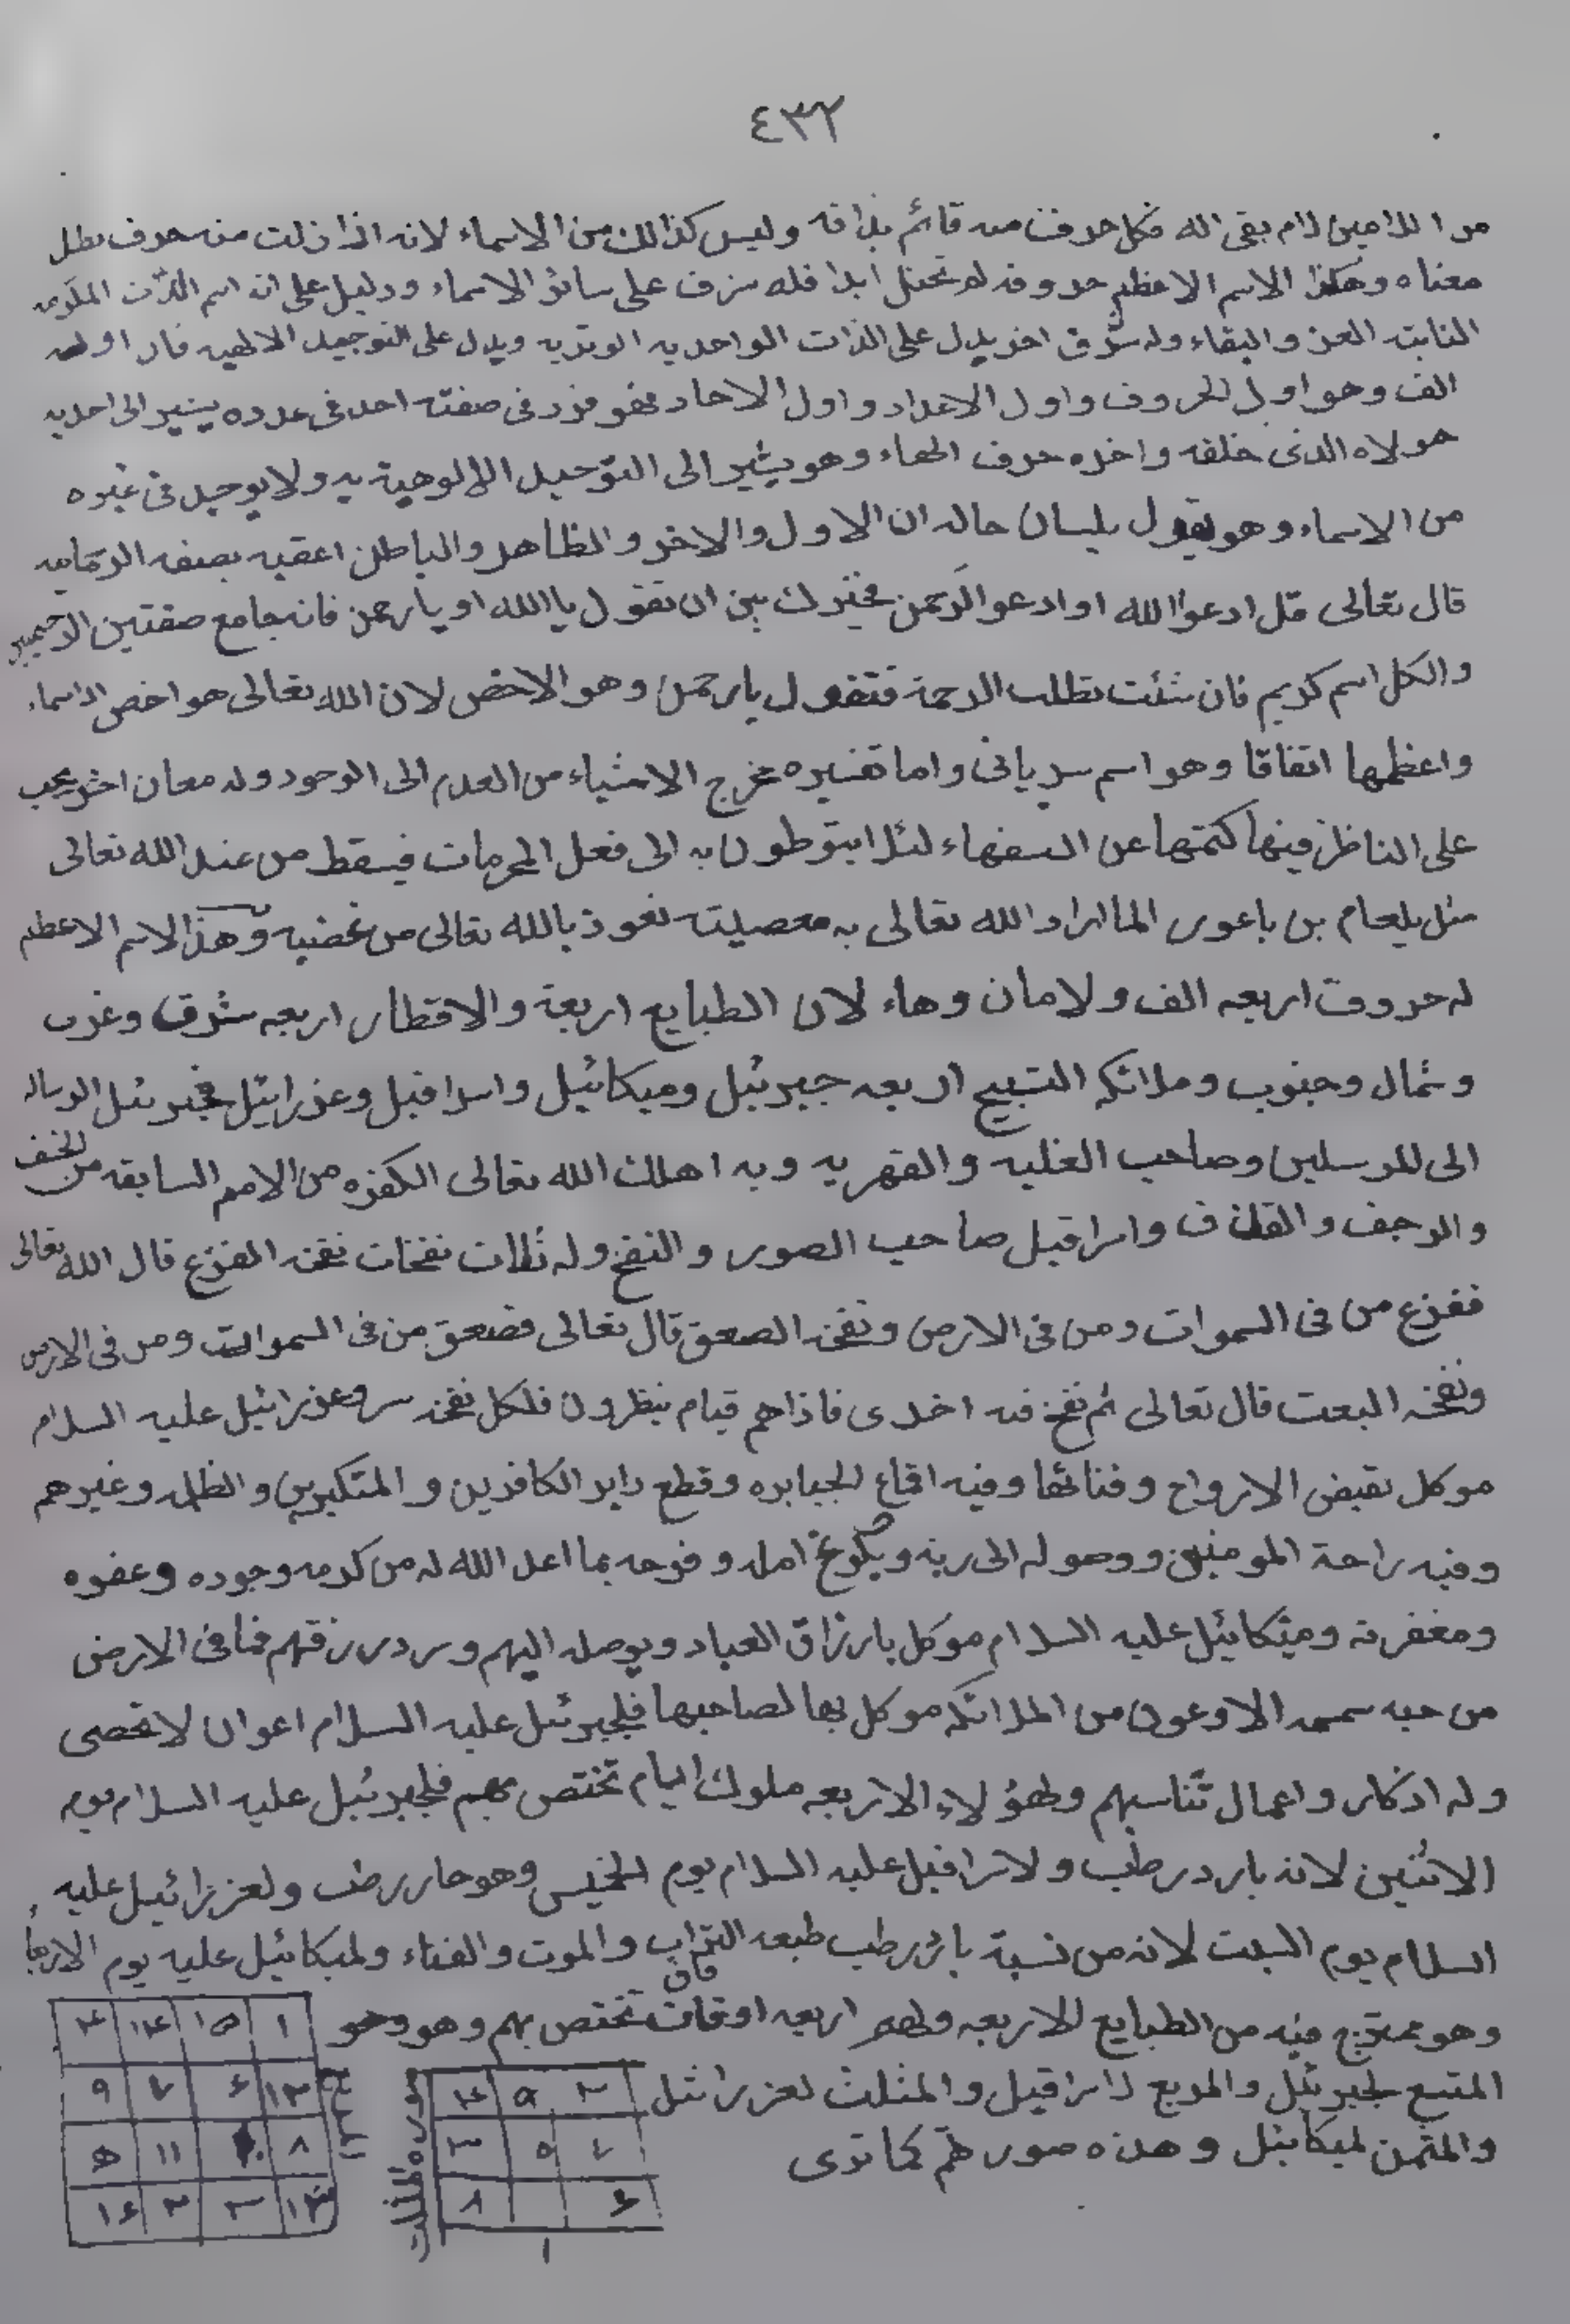 ٤٣٢
بقى الله فكل حرف منه قائم بذاته وليس كذالك من الاسماء لانه اذا زلت منه حرف بطل
معناه وهكذا الاسم الاعظم حروفه لم تختل ابدا فله شرف على سائر الاسماء ودليل على انه اسم الذات
العز والبقاء وله شرف اخر يدل على الذات الواحديه الوتريه ويدل على التوحيد الالهيه فان اوله
الف وهو اول الحروف واول الاعداد واول الاحاد فهو فرد فى صفته احد فى عدده يشير الى احديه
مولاه الذى خلقه واخره حرف الهاء وهو يشير الى التوحيد الالوهية به ولا يوجد فى غيره
من الاسماء وهو يقول بلسان حاله ان الاول والاخر والظاهر والباطن اعقبه بصفه الرحمانيه
قال تعالى قل ادعوا الله او ادعو الرحمن مخيرك بين ان تقول يا الله او يا رحمن فانه جامع صفتين
والكل اسم كريم فان شئت تطلب الرحمة فتقول يا رحمن وهو الاخص لان الله تعالى هو اخص الاسماء
واعظمها اتفاقا وهو اسم سريانى واما تفسيره مخرج الاشياء من العدم الى الوجود وله معان اخر يجب
على الناظر فيها كتمتها عن السفهاء لئلا ايتوطون به الى فعل المحرمات فيسقط من عند الله تعالى
مثل بلعام بن باعوى لما اراد الله تعالى به معصيته نعوذ بالله تعالى من غضبه وهذا الاسم الاعظم
له حروف اربعه الف ولامان وهاء لان الطبايع اربعة والاقطار اربعه شرق وغرب
وشمال وجنوب وملائكه التسبيح اربعه جبرئيل وميكائيل واسرافيل وعزرائيل فجبرئيل الرساله
الى المرسلين وصاحب الغلبه والقهريه وبه اهلك الله تعالى الكفره من الامم السابقه من الخسف
والرجف والقذف واسرافيل صاحب الصور والنفخ وله ثلاث نفخات نفخه الفزع قال الله تعالى
ففزع من فى السموات ومن فى الارض ونفخه الصعق قال تعالى فصعق من فى السموات ومن فى الارض
ونفخه البعث قال تعالى ثم نفخ فيه اخرى فاذا هم قيام ينظرون فلكل نفخه سر وعزرائيل عليه السلام
موكل بقبض الارواح وفنائها وفيه اقماع الجبابره وقطع دابر الكافرين والمتكبرين والظلمه وغيرهم
وفيه راحة المومنين ووصوله الى ربه وبلوغ امله وفرحه بما اعد الله له من كرمه وجوده وعفوه
ومغفرته وميكائيل عليه السلام موكل بارزاق العباد ويوصله اليهم فما فى الارض
من حبه الا وعون من الملائكه موكل بها لصاحبها فلجبرئيل عليه السلام اعوان لا تحصى
وله اذكار واعمال تناسبهم ولهؤلاء الاربعه ملوك ايام تختص بهم فلجبرئيل عليه السلام يوم
الاثنين لانه بارد رطب ولاسرافيل عليه السلام يوم الخميس وهو حار رطب ولعزرائيل عليه
السلام يوم السبت لانه من نسبة بارد رطب طبعه التراب والموت والفناء ولميكائيل عليه يوم الاربعاء
وهو ممتزج فيه من الطبايع الاربعه ولهم اربعه اوفاق تختص بهم وهو
المتسع لجبرئيل والمربع لاسرافيل والمثلث لعزرائيل
والمثمن لميكائيل وهذه صورهم كما ترى
٢ ٩ ٤
٧ ٥ ٣
٦ ٨
١
١ ١٥ ١٤ ٤
١٢ ٦ ٧ ٩
٨ ١٠ ١١ ٥
١٣ ٣ ٢ ١٦